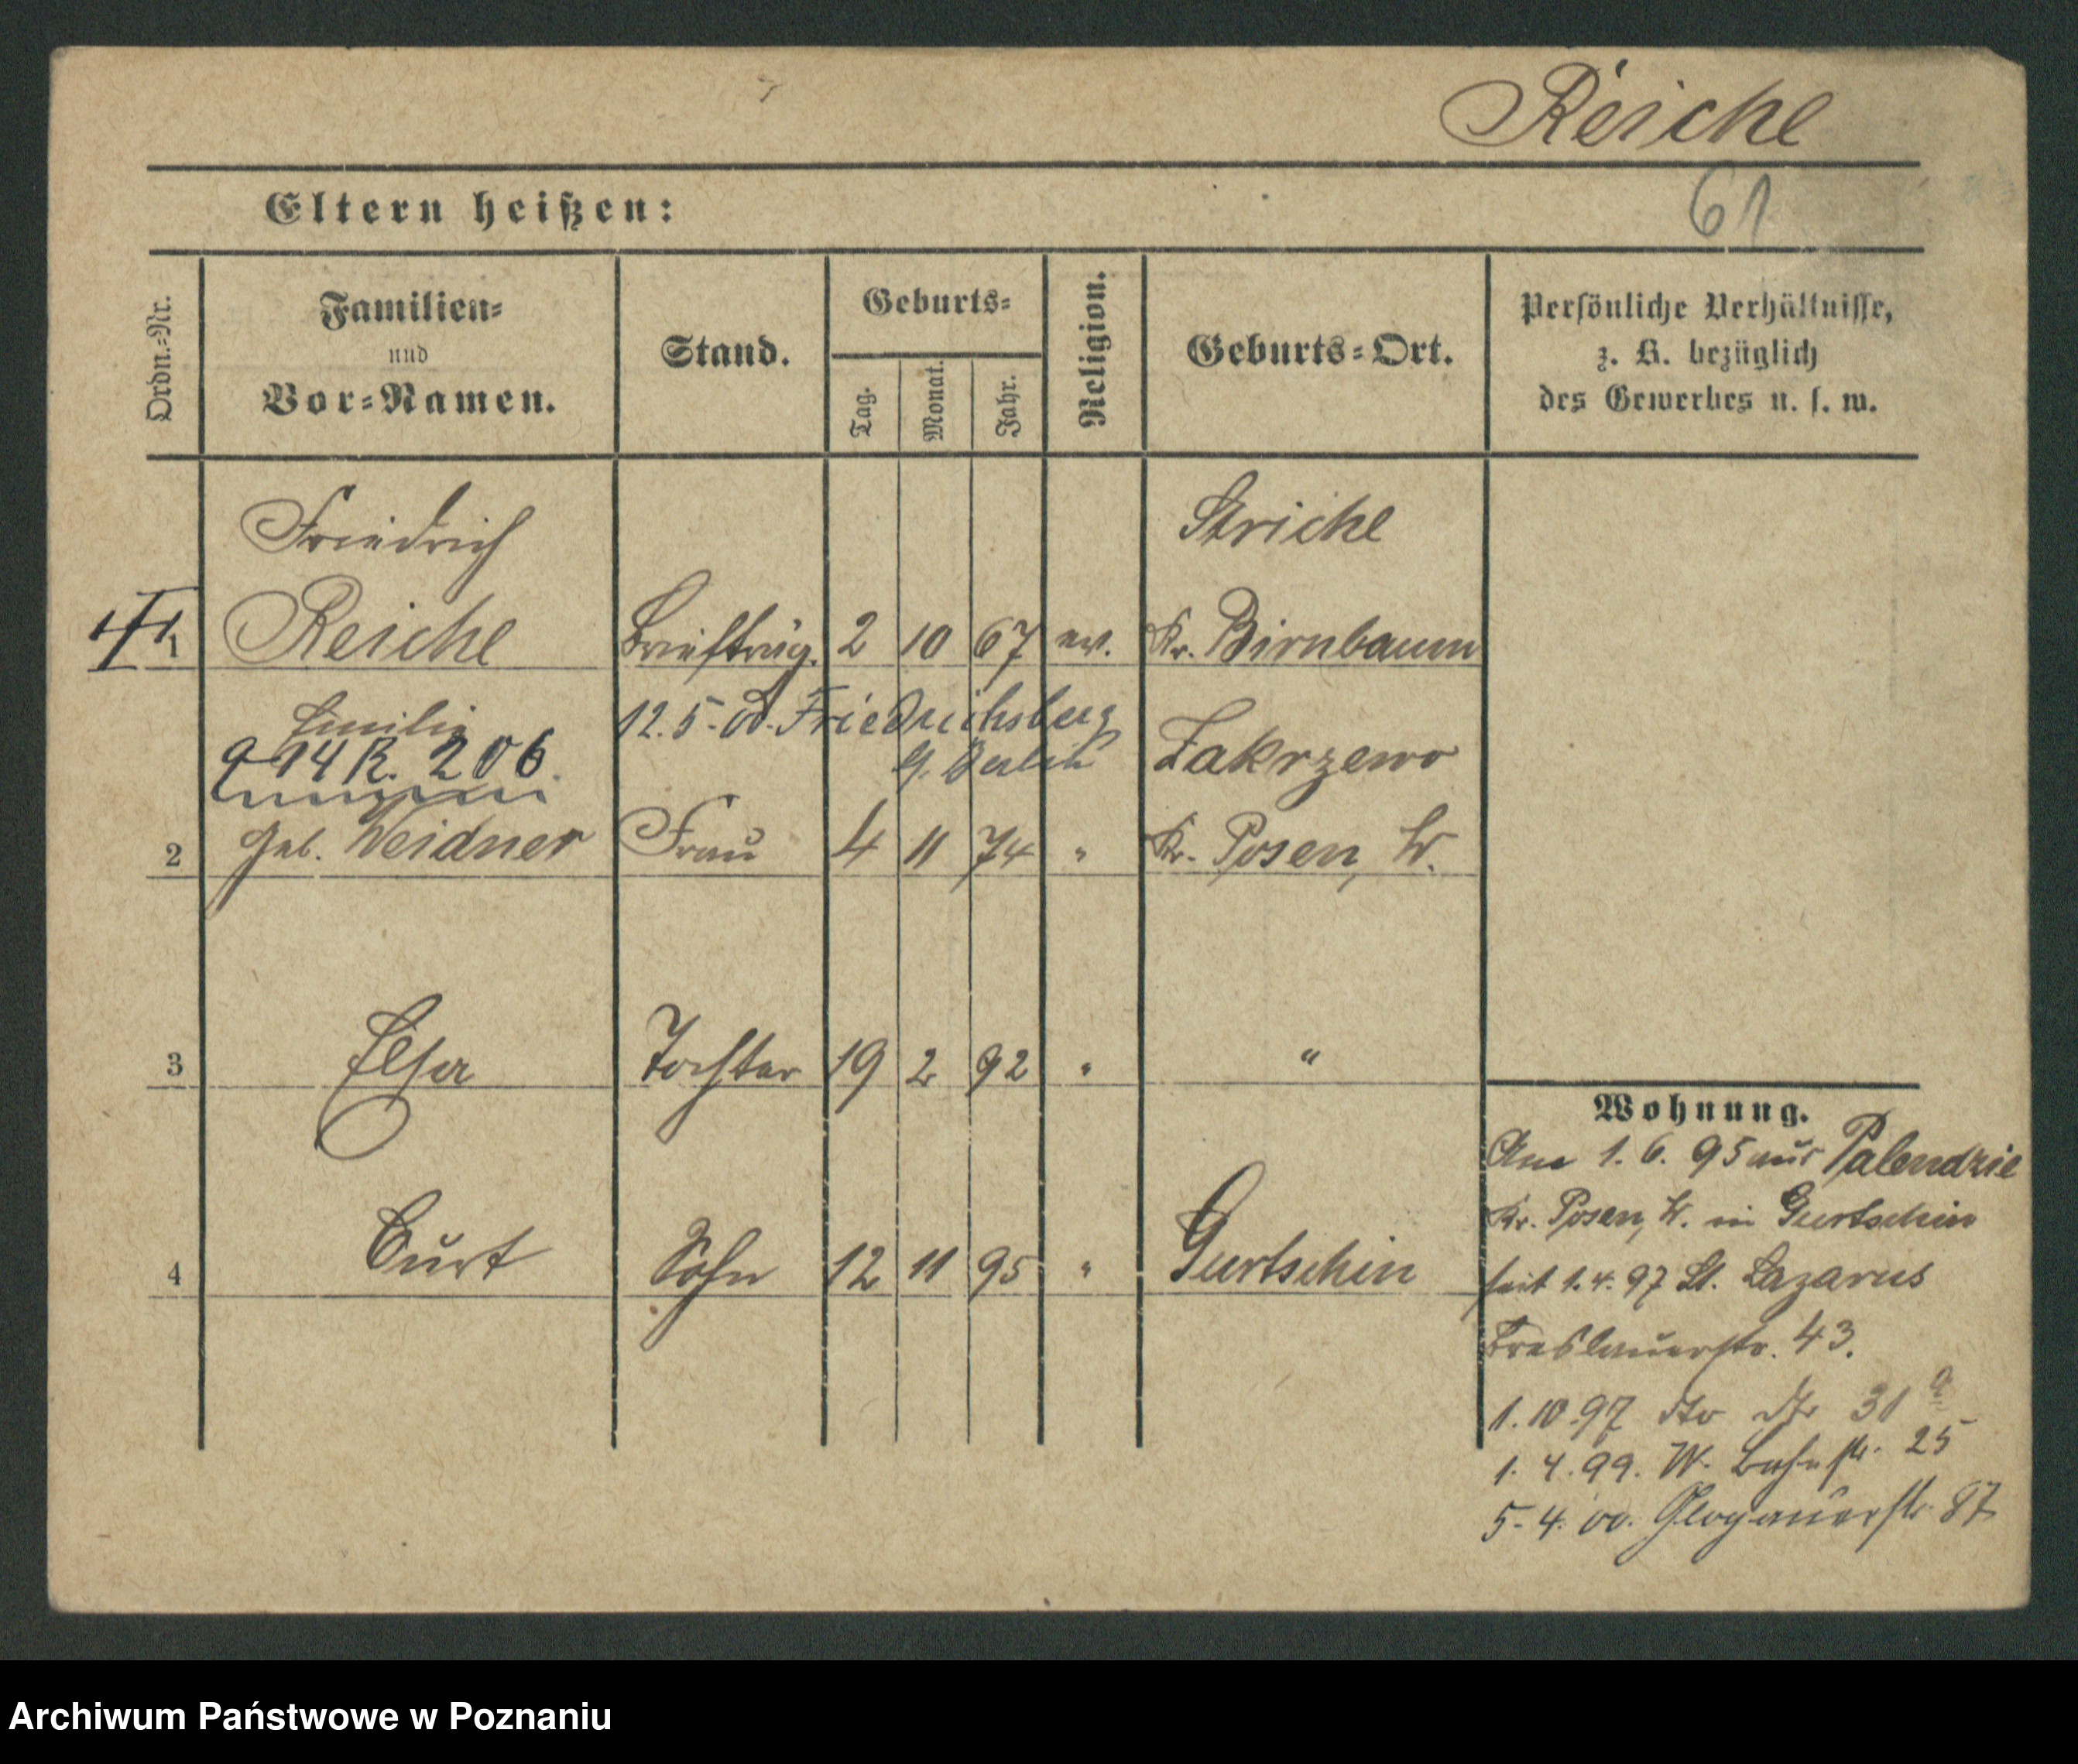 Reiche
61
Eltern heißen:
Ordn.-Nr.
Familien-
und
Vor-Namen.
Stand.
Geburts-
Tag.
Monat.
Jahr.
Religion.
Geburts-Ort.
Persönliche Verhältnisse,
z. B. bezüglich
des Gewerbes u. s. w.
Friedrich
Reiche
Briefträg. 2 10 67 ev.
Striche
Kr. Birnbaum
Emilie
914 R. 206.
geb. Weidner
12.5.00. Friedrichsberg
b. Berlin
2
Frau 4 11 74 "
Zakrzewo
Kr. Posen, W.
3 Elsa Tochter 19 2 92 " "
4 Curt Sohn 12 11 95 " Gurtschin
Wohnung.
Am 1. 6. 95 aus Palendzie
Kr. Posen, W. in Gurtschin
seit 1.4.97 St. Lazarus
Breslauerstr. 43.
1.10.97 dto dto 31a
1.4.99. W. Bahnstr. 25
5.4.00. Glogauerstr. 87
Archiwum Państwowe w Poznaniu